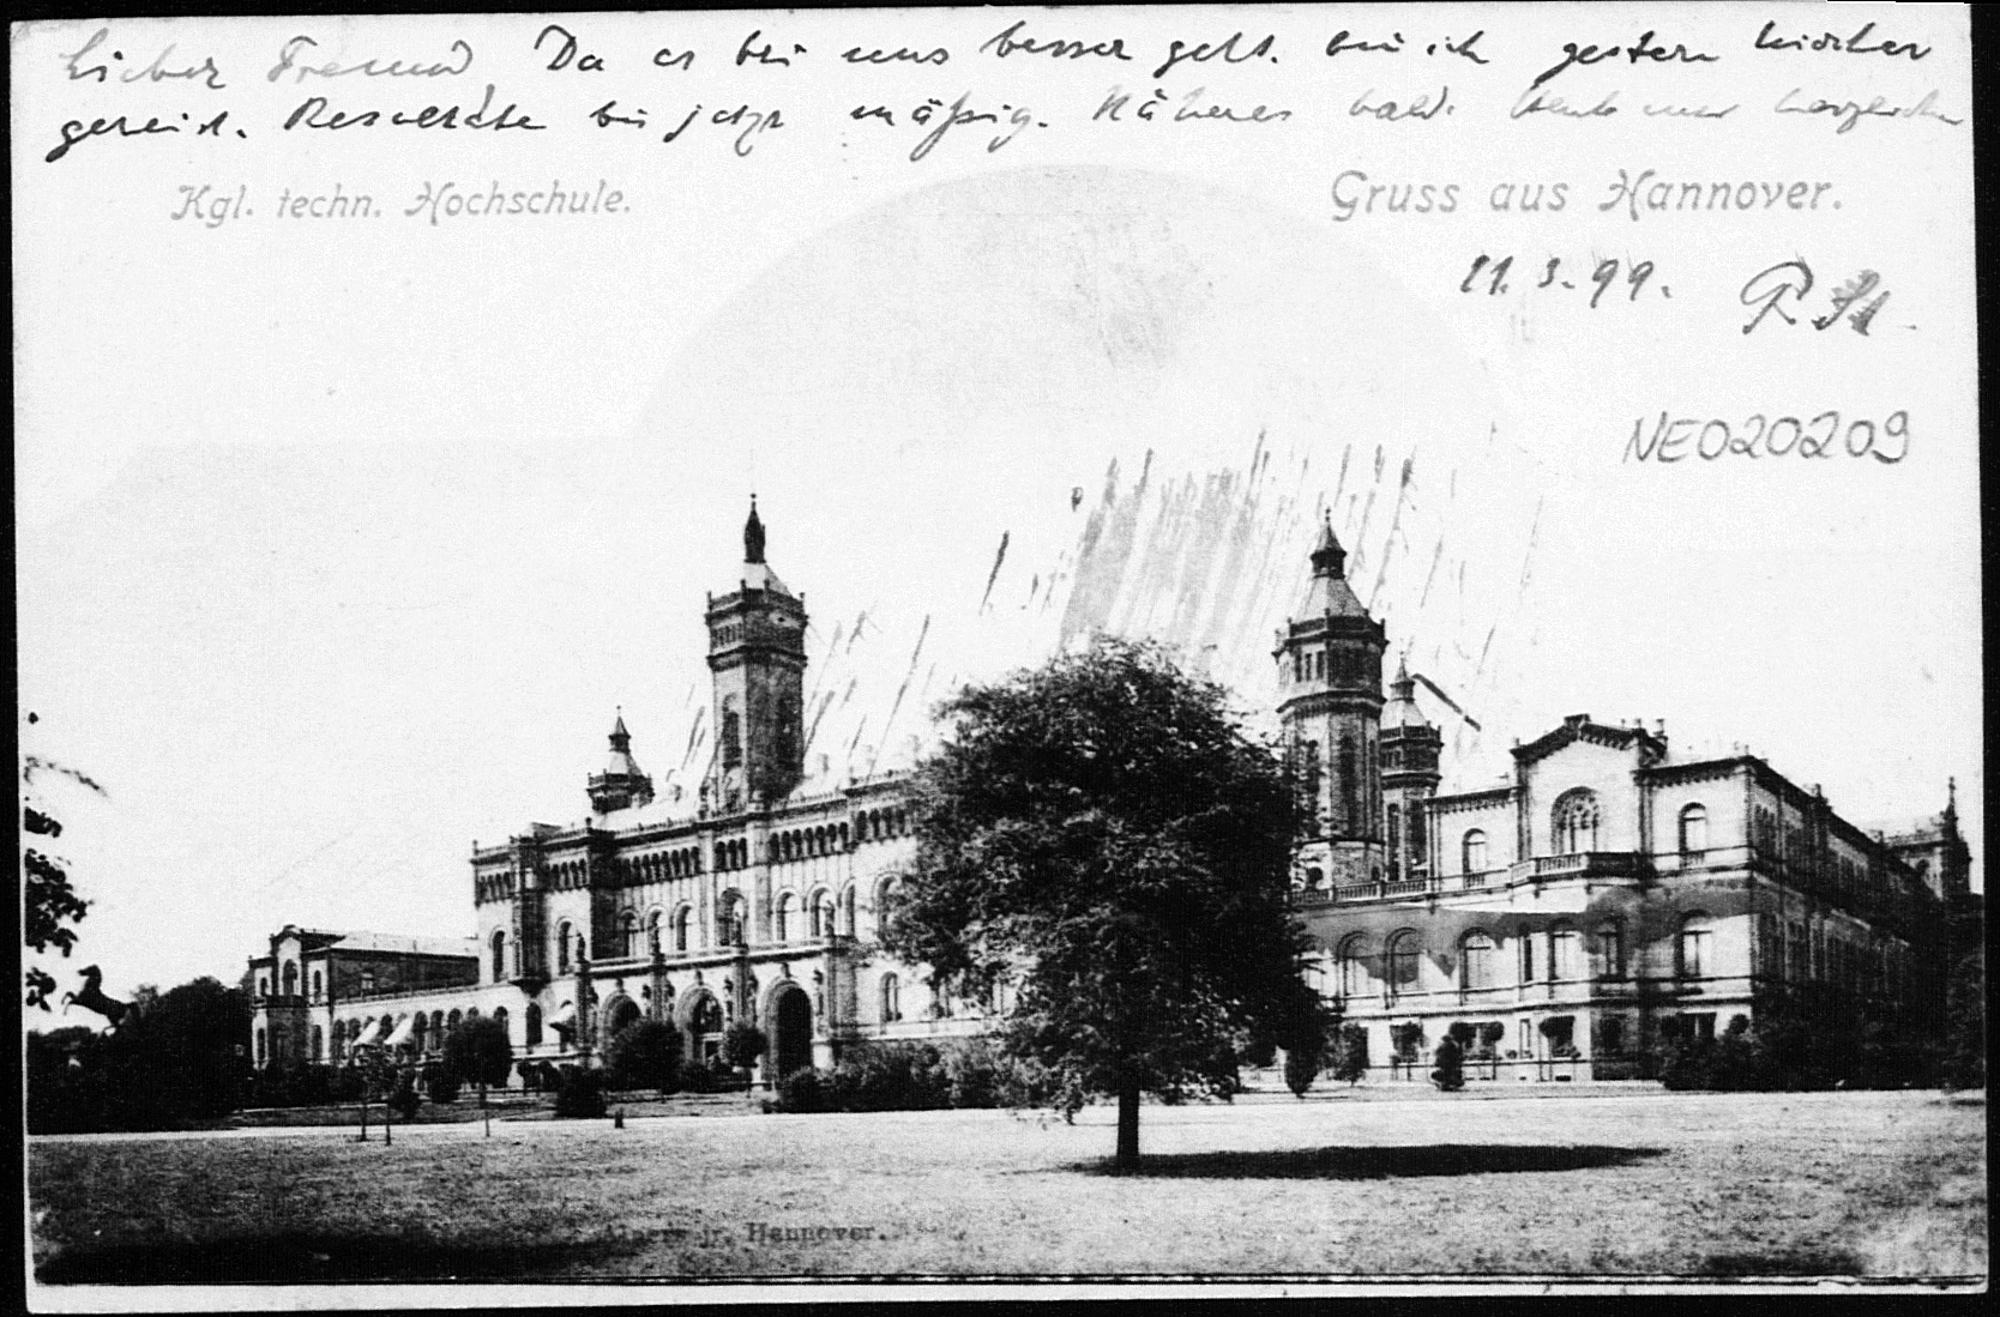 Lieber Freund, Da es bei uns besser geht. bin ich gestern hierher
gereist. Resultate bis jetzt mäßig. Näheres bald. Heute nur herzlichen
Kgl. techn. Hochschule.
Gruss aus Hannover.
11.3.99. R St.
NE020209
Alpers jr. Hannover.